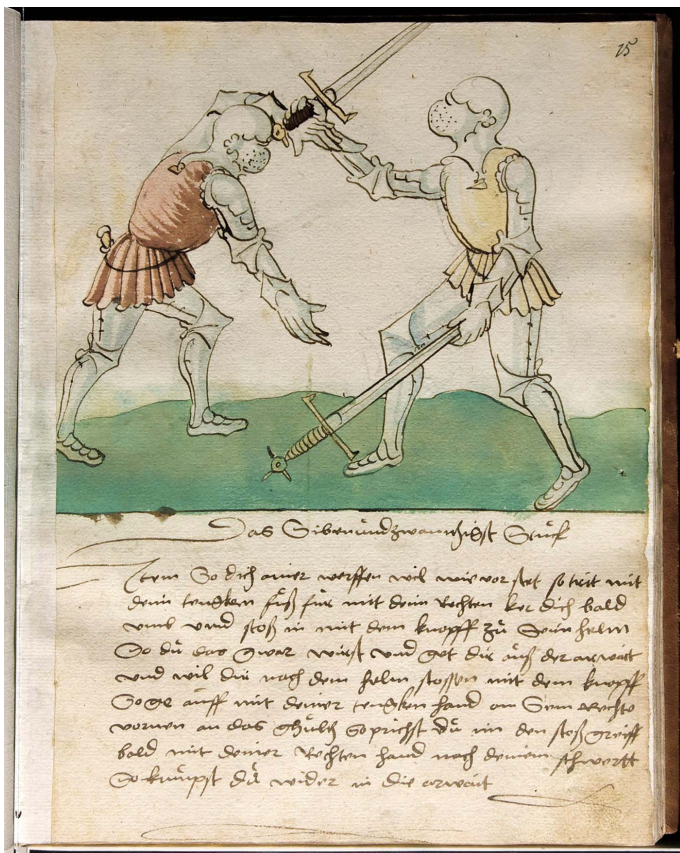 25
Das Sibenundzwanntzigst Stuck
Item So dich ainer werffen wil wie vor stet so trit mit
deim tencken fuß für mit deim Rechten ker dich bald
umb und stoß in mit dem knopff zu Seim helm
So du das gwar wirst und get dir auß der arwait
und wil dir nach dem helm stossen mit dem knopff
So ge auff mit deiner tencken hand an Sein Rechte
vornen an das so prichst du im den stoß greiff
bald mit deiner Rechten hand nach deinem schwertt
So kumpst du wider in die arwait